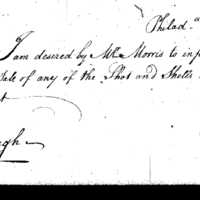 Philad.a
I am desired by Mr. Morris to inf
Sale of any of the Shot and Shells
t
gh